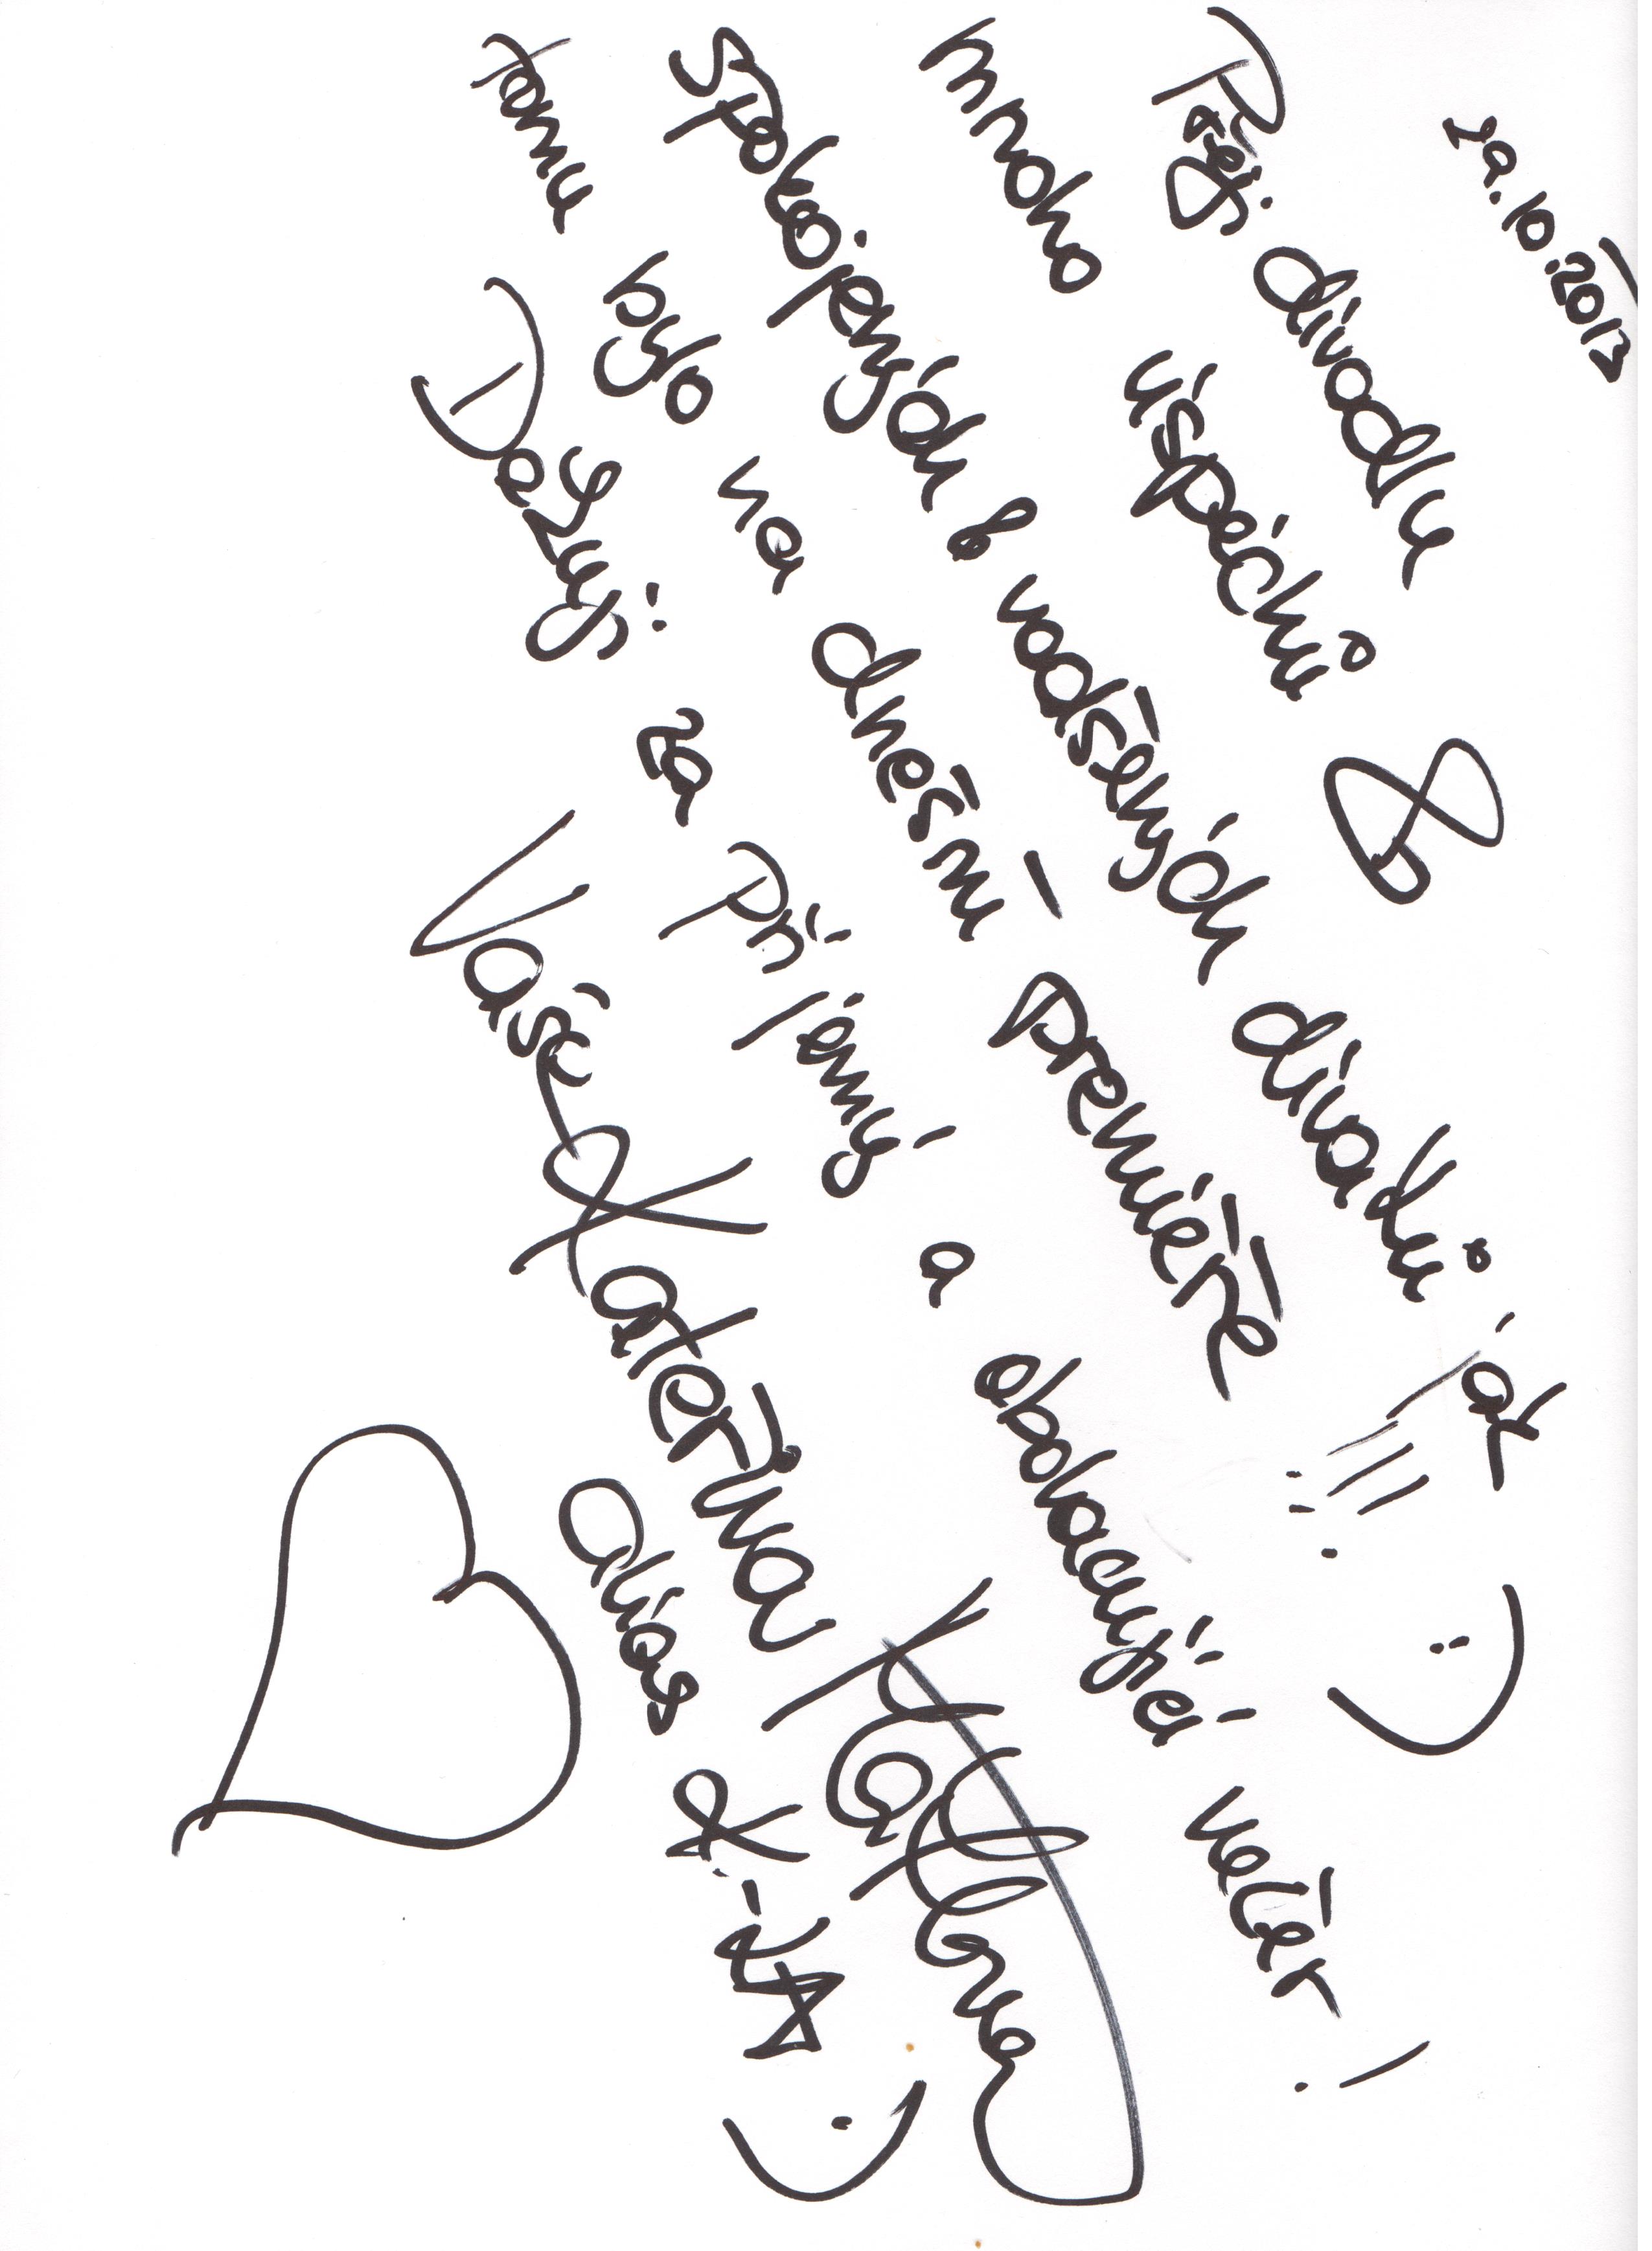 Přeji divadlu
mnoho úspěchů &
spokojených & nadšených diváků jak
tomu bylo na dnešní premiéře !!! :)
Děkuji za příjemný a obohacující večer!
Vaše Kateřina
alias